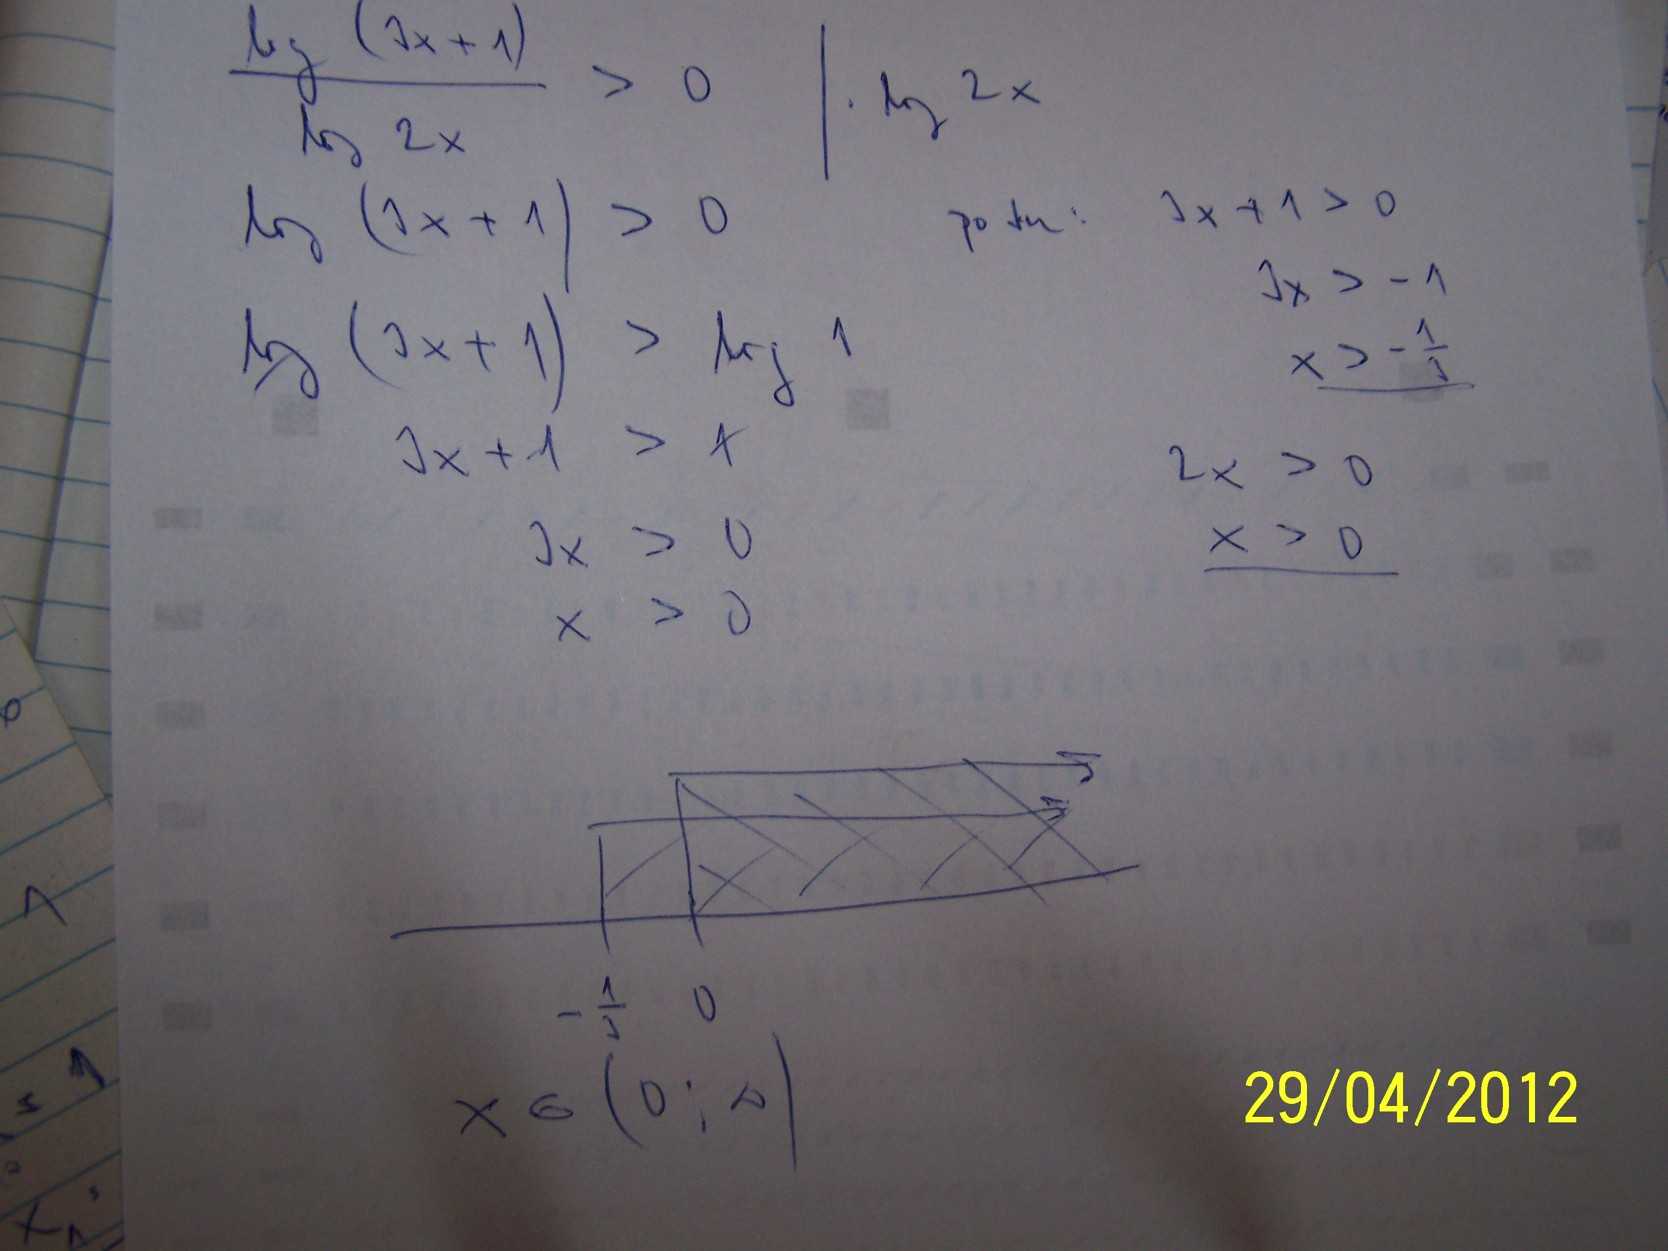 log (3x+1) / log 2x > 0 | · log 2x
log (3x+1) > 0
log (3x+1) > log 1
3x+1 > 1
3x > 0
x > 0
3x+1 > 0
3x > -1
x > -1/3
2x > 0
x > 0
-1/3 0
x ∈ (0; ∞)
29/04/2012